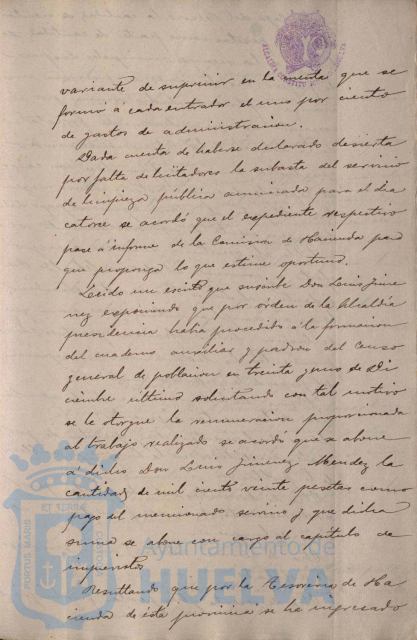 variante de suprimir en la cuenta que se
formó á cada entrador el uno por ciento
de gastos de administracion.
Dada cuenta de haberse declarado desierta
por falta de licitadores la subasta del servicio
de limpieza pública anunciada para el dia
catorce se acordó que el expediente respectivo
pase á informe de la Comision de Hacienda para
que proponga lo que estime oportuno.
Leido un escrito que suscribe Don Luis Jime
nez exponiendo que por órden de la Alcaldía
presidencia habia procedido á la formacion
del cuaderno auxiliar y padron del Censo
general de poblacion en treinta y uno de Di
ciembre último solicitando con tal motivo
se le otorgue la remuneracion proporcionada
al trabajo realizado se acordó que se abone
a dicho Don Luis Jimenez Mendez la
cantidad de mil ciento veinte pesetas como
pago del mencionado servicio y que dicha
suma se abone con cargo al capítulo de
imprevistos.
Resultando que por la Tesorería de Ha
cienda de ésta provincia se ha ingresado
Ayuntamiento de
HUELVA
PORTUS MARIS
ET TERRAE